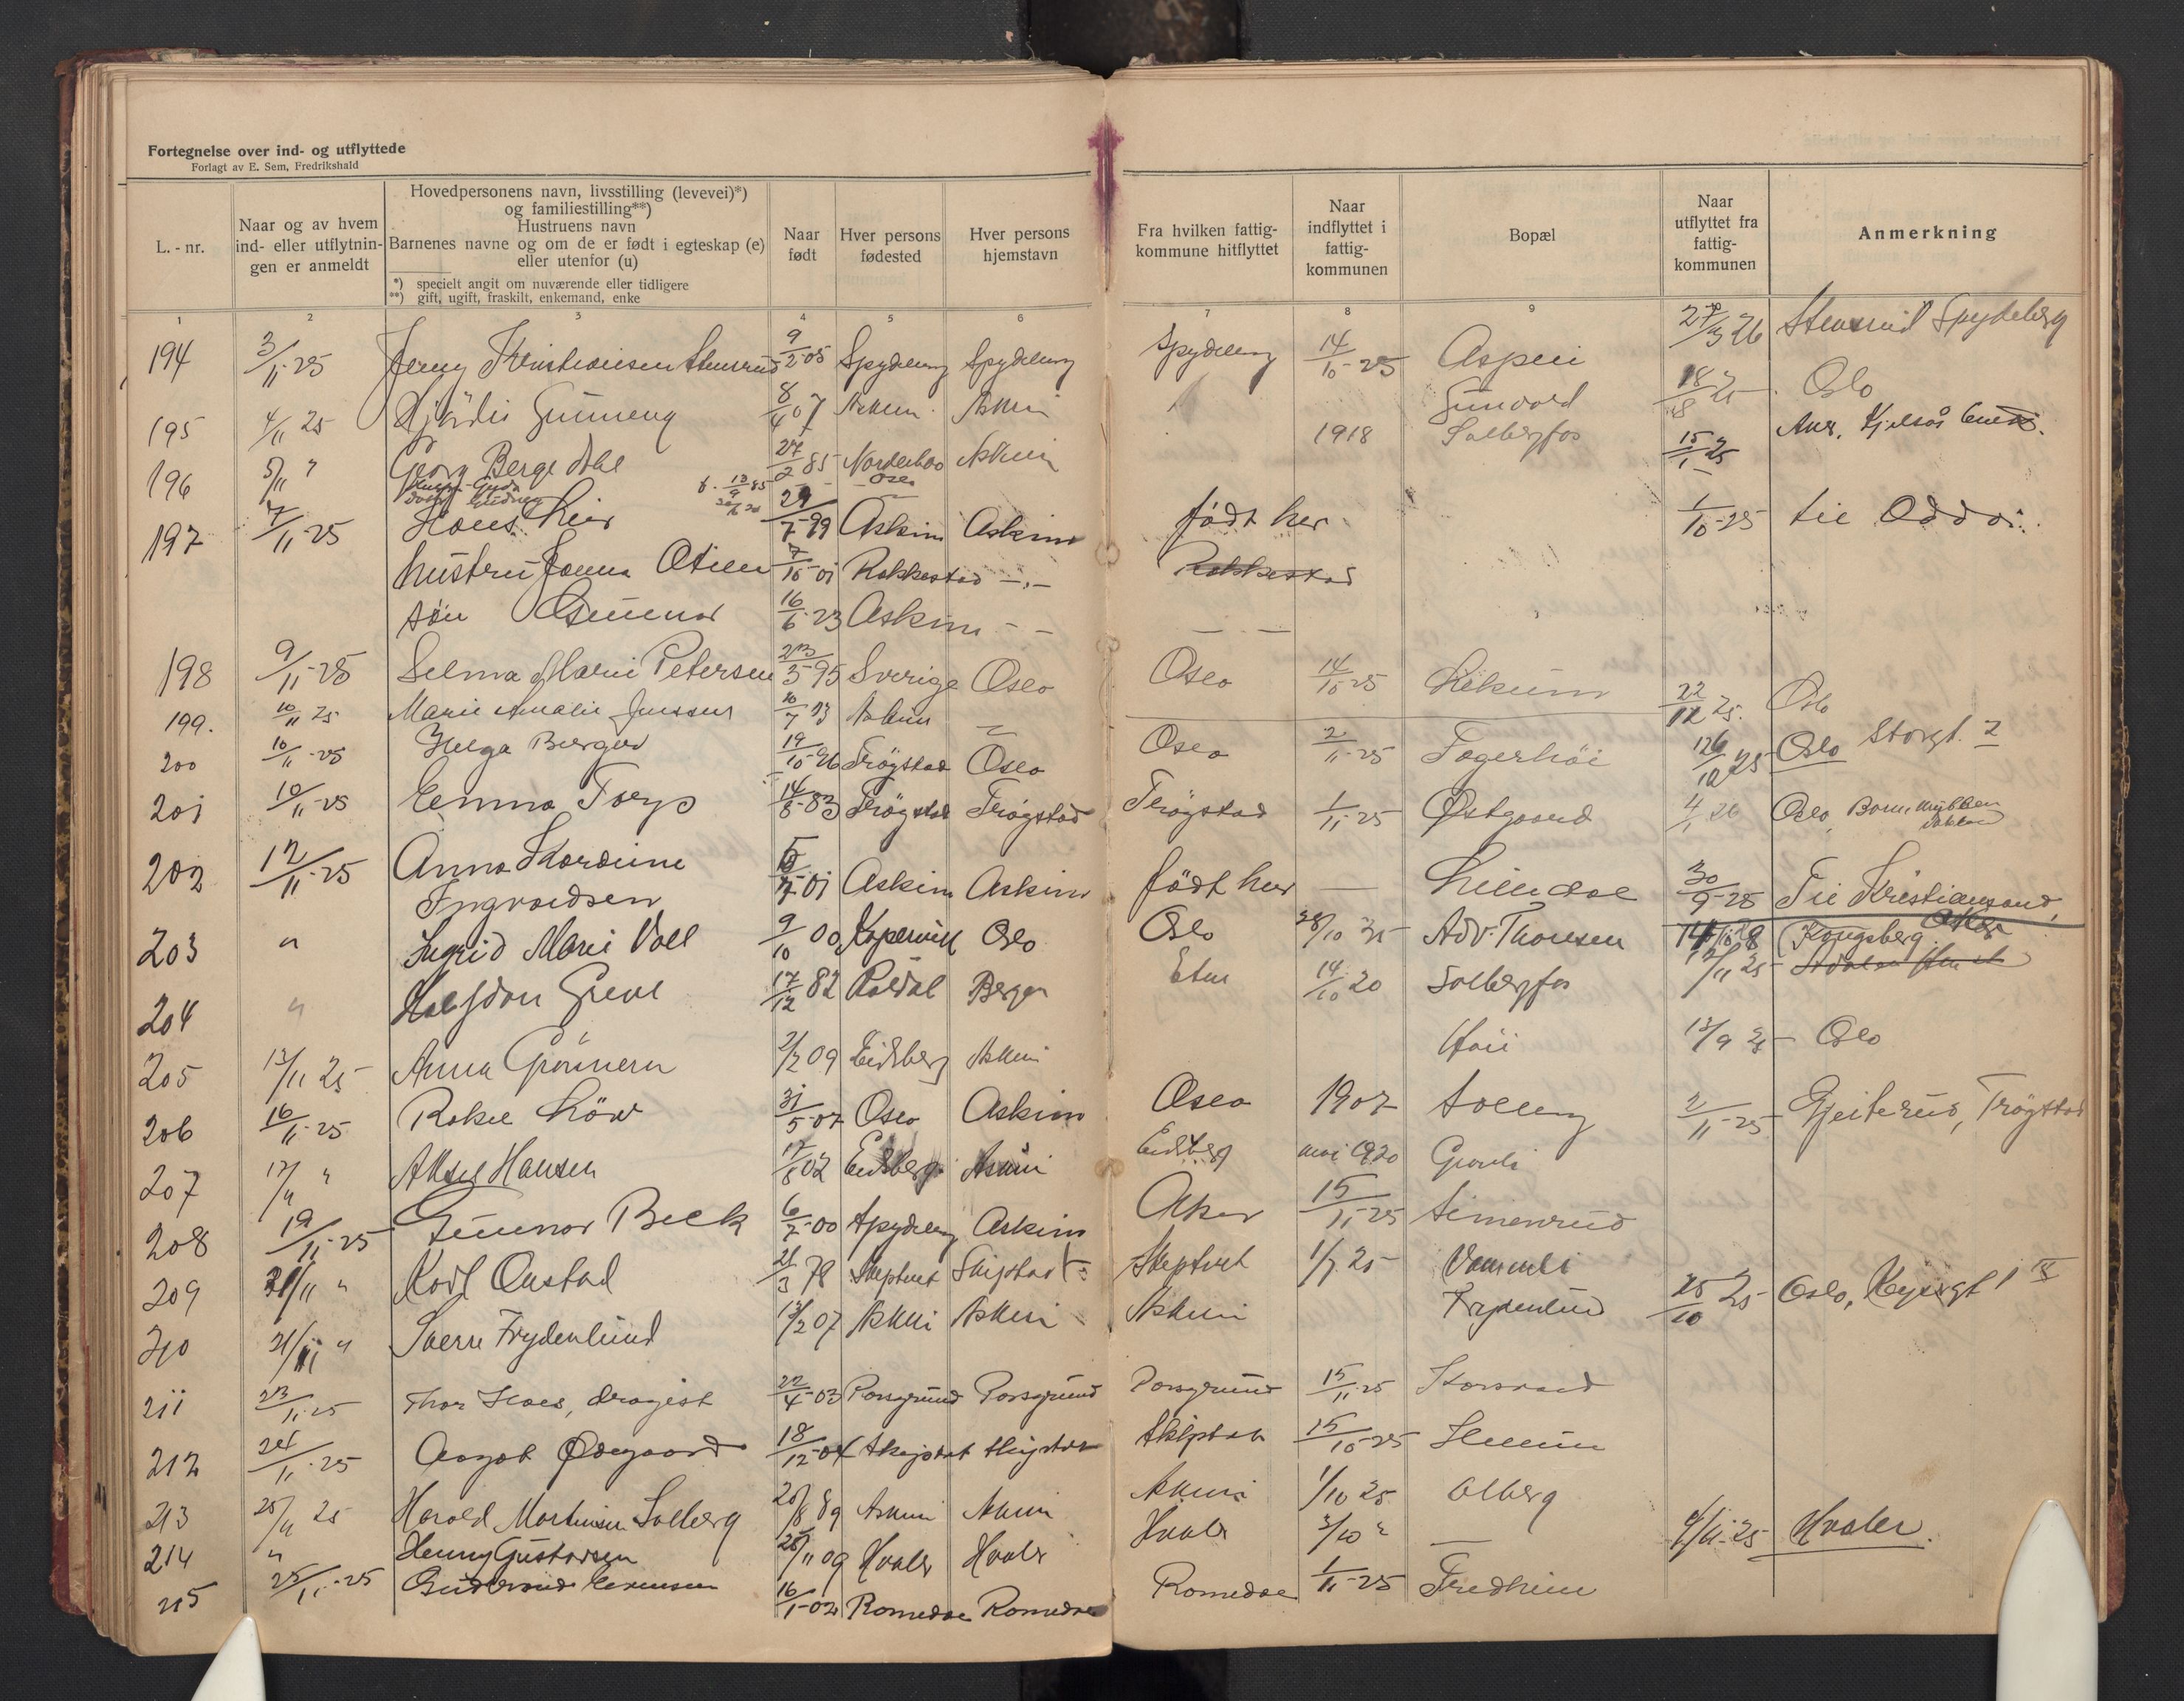 Fortegnelse over ind- og utflyttede
Forlagt av E. Sem, Fredrikshald
L. - nr.
Naar og av hvem
ind- eller utflytnin-
gen er anmeldt
Hovedpersonens navn, livsstilling (levevei)*)
og familiestilling**)
Hustruens navn
Barnenes navne og om de er født i egteskap (e)
eller utenfor (u)
*) specielt angit om nuværende eller tidligere
**) gift, ugift, fraskilt, enkemand, enke
Naar
født
Hver persons
fødested
Hver persons
hjemstavn
Fra hvilken fattig-
kommune hitflyttet
Naar
indflyttet i
fattig-
kommunen
Bopæl
Naar
utflyttet fra
fattig-
kommunen
Anmerkning
1 2 3 4 5 6 7 8 9
194 3/11-25 Jenny Kristiansen Stensrud 9/2-05 Spydeberg Spydeberg Spydeberg 14/10-25 Aspen 27/3 26 Stensrud Spydeberg
195 4/11 25 Hjördis Gunneng 8/4 07 Askim Askim 18/8 25 Oslo
196 5/11 " Georg Berge Dahl 27/2 85 Norderhov Askim 1918 Solbergfos 15/1 25
197 7/11-25 Hans Lier 29/7-99 Askim Askim født her 1/10-25
hustru Rakkestad Rakkestad
søn Gunnar 16/6-23 Askim
198 9/11-25 Selma Marie Petersen 23/3-95 Sverige Oslo Oslo 14/10 25 22/12 25 Oslo
199. 10/11 25 Marie Amalie Jenssen Askim
200 10/11-25 Helga Berger 19/10-96 Trögstad Oslo Oslo 2/11-25 Fagerhöi Oslo Storgt. 2
201 10/11-25 Emma Torp 14/8-83 Trögstad Trögstad Trögstad 1/11-25 Østgaard 4/1 26 Oslo
202 12/11-25 Anna Thordine
Ingvaldsen Askim Askim født her Liendal 30/9-25 Til Kristiansand
203 " Ingrid Marie Voll 9/10 00 Kopervik Oslo Oslo 28/10 25 Adv. Thonsen Kongsberg
204 " Halfdan Greve 17/12 82 Röldal Bergen 14/10 20 Solbergfos 12/11 25
205 13/11 25 Anna Grönnern 2/2 09 Eidsberg Askim Höii Oslo
206 16/11-25 Rakel Löw 31/5-07 Oslo Askim Oslo 1907 Solleng 2/11-25 Gjeiterud, Trögstad
207 17/11 " Aksel Hansen 17/8 02 Eidsberg Askim Eidsberg mai 1920
208 19/11-25 Gunnar Beck 6/7-00 Spydeberg Askim Aker 15/11-25 Simenrud
209 21/11 " Karl Onstad 21/3 78 Skiptvet Skiptvet Skiptvet 1/7 25 Vammeli
210 21/11 " Sverre Frydenlund 12/2 07 Askim Askim Askim Frydenlund 25/10 25 Oslo
211 23/11-25 Thor Hoes, drogist 22/4-03 Porsgrund Porsgrund Porsgrund 15/11-25
212 24/11-25 Aagot Ødegaard 18/12-04 Skiptvet Skiptvet Skiptvet 15/10-25
213 25/11 25 Harald Martinsen Solberg 20/8 89 Askim Askim Askim 1/10 25 Olberg
214 " Henny Gustavsen 28/11 09 Hvaler Hvaler Hvaler 3/10 " 4/11-25 Hvaler.
215 25/11-25 Gudbrand Evensen 16/1-02 Romedal Romedal Romedal 1/11-25 Fredheim